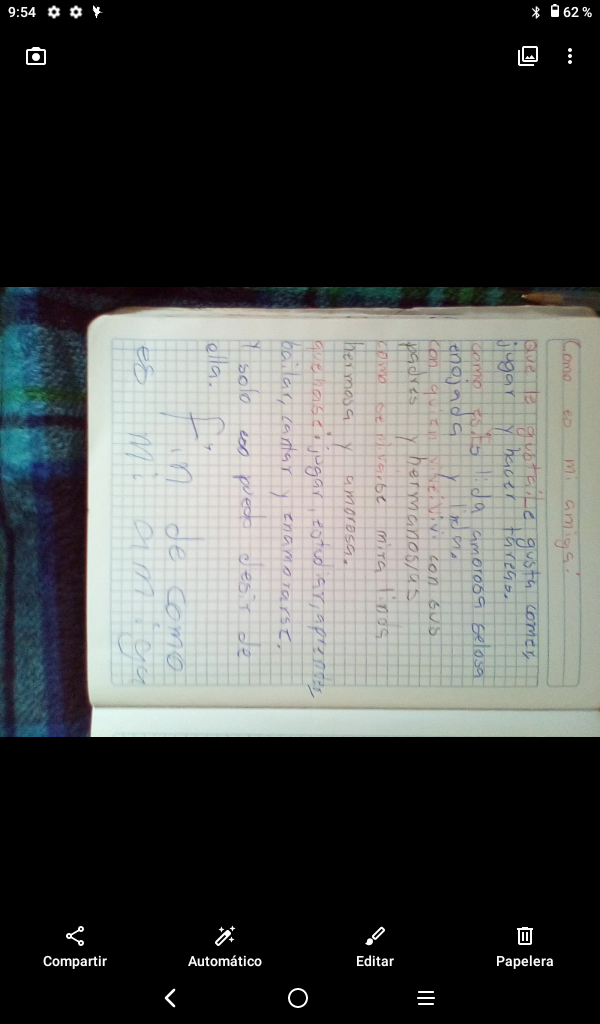 9:54
62 %
Como es mi amiga.
que le gusta: Le gusta comer,
jugar y hacer tareas.
como es: linda amorosa selosa
enojada y linda.
con quien vive: vivi con sus
padres y hermanos/as
como se mira: se mira lindos
hermosa y amorosa.
que hase: jugar, estudiar, aprender,
bailar, cantar y enamorarse,
Y solo eso puedo desir de
ella.
Fin de como
es mi amiga
Compartir
Automático
Editar
Papelera